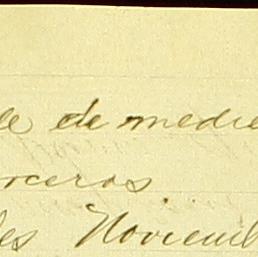 de medie
rceros
les Noviemb